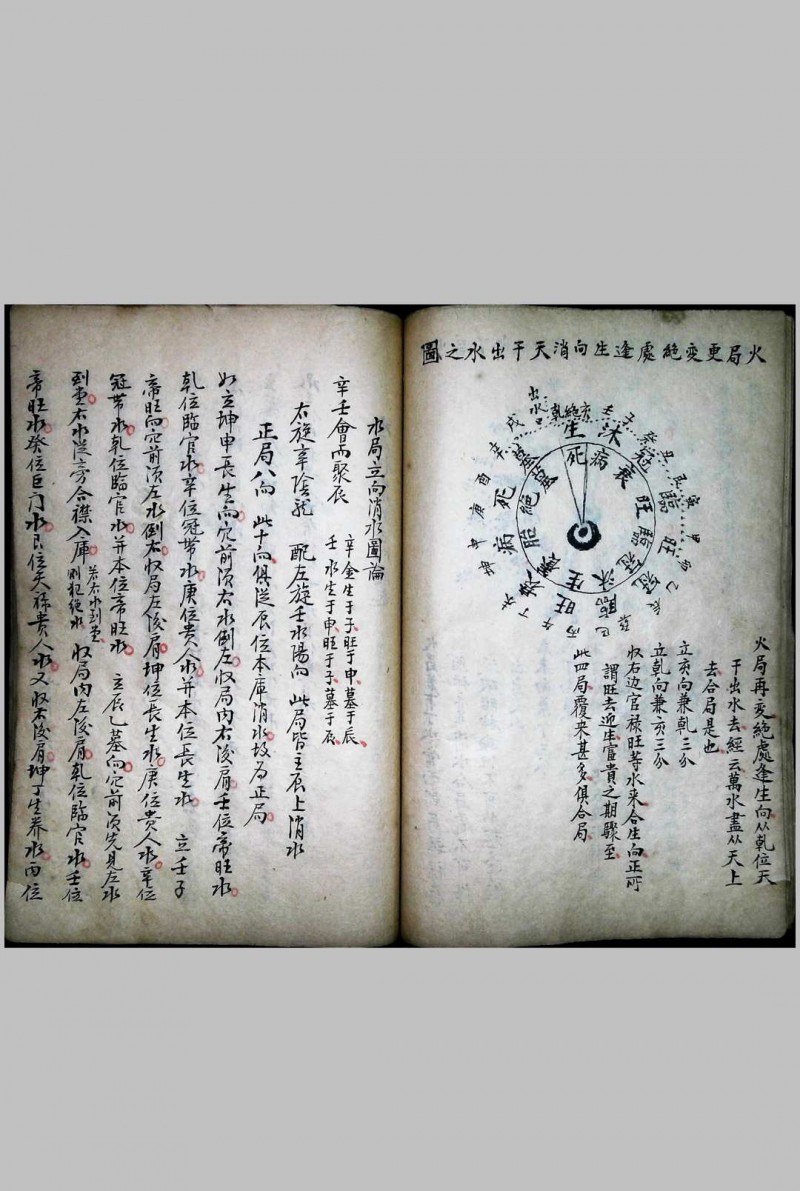 火局更变絕處逢生向消天干出水之圖
出水口
乾 亥 壬 子 癸 丑 艮 寅 甲 卯 乙 辰 巽 巳 丙 午 丁 未 坤 申 庚 酉 辛 戌
生 沐 冠 臨 旺 衰 病 死 墓 絕 胎 養
火局再变絕處逢生向从乾位天
干出水去經云萬水盡从天上
去合局是也
立亥向兼乾三分
立乾向兼亥三分
收右边官禄旺等水来合生向正所
謂旺去迎生富貴之期驟至
此四局覆来甚多俱合局
水局立向消水圖論
辛壬會而聚辰
辛金生于子旺于申墓于辰
壬水生于申旺于子墓于辰
右旋辛陰龍 配左旋壬水陽向 此局皆主辰上消水
正局八向 此十向俱從辰位本庫消水故為正局
如立坤申長生向穴前須右水倒左收局内右後肩壬位帝旺水
乾位臨官水辛位冠带水庚位貴人水并本位長生水 立壬子
帝旺向穴前須左水倒右收局左後肩坤位長生水庚位貴人水辛位
冠带水乾位臨官水并本位帝旺水 立辰乙墓向穴前須先見左水
到堂右水從旁合襟入庫 若右水到堂則犯絕水 收局内左後肩乾位臨官水壬位
帝旺水癸位巨门水艮位天禄貴人水又收右後肩坤丁生养水丙位